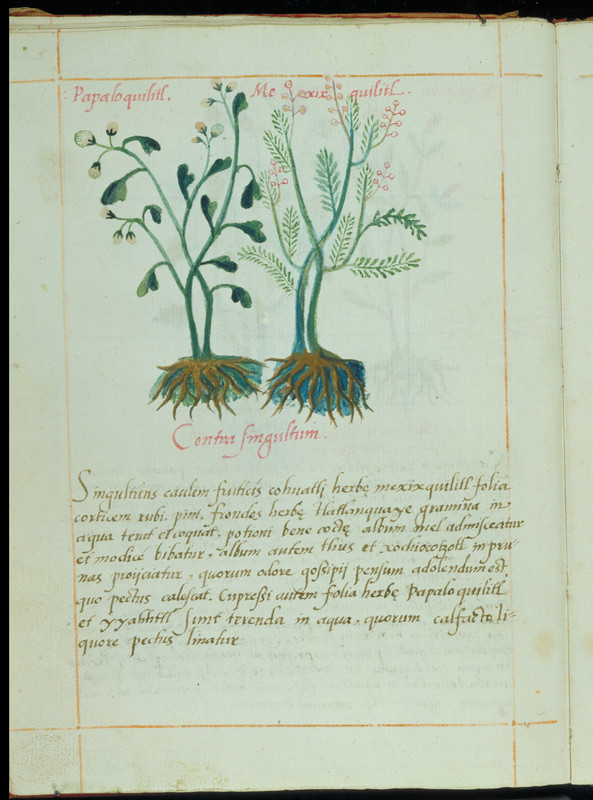 Papaloquilitl. Mexixquilitl.
Contra singultum.
Singultiens caulem fruticis cohuatli herbę mexixquilitl folia
corticem rubi, pini, frondes herbę tlatlanquaye gramina in
aqua terat et coquat. potioni bene coctę album mel admisceatur
et modicè bibatur, album autem thus et xochiocotzotl in pru-
nas proijciatur, quorum odore gossipij pensum adolendum est
quo pectus calescat. Cupreßi autem folia herbę Papaloquilitl
et yyauhtli sunt terenda in aqua, quorum calfacto li-
quore pectus linatur